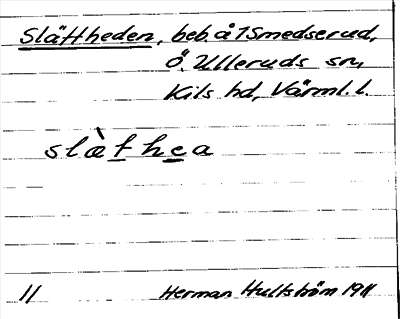 Slättheden, beb. å 1 Smedserud,
Ö. Ulleruds sn,
Kils hd, Värml. l.
slæ̀fhea
11 Herman Hultström 1911